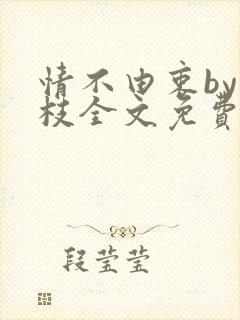 情不由衷by
枝全文免費
段莹莹